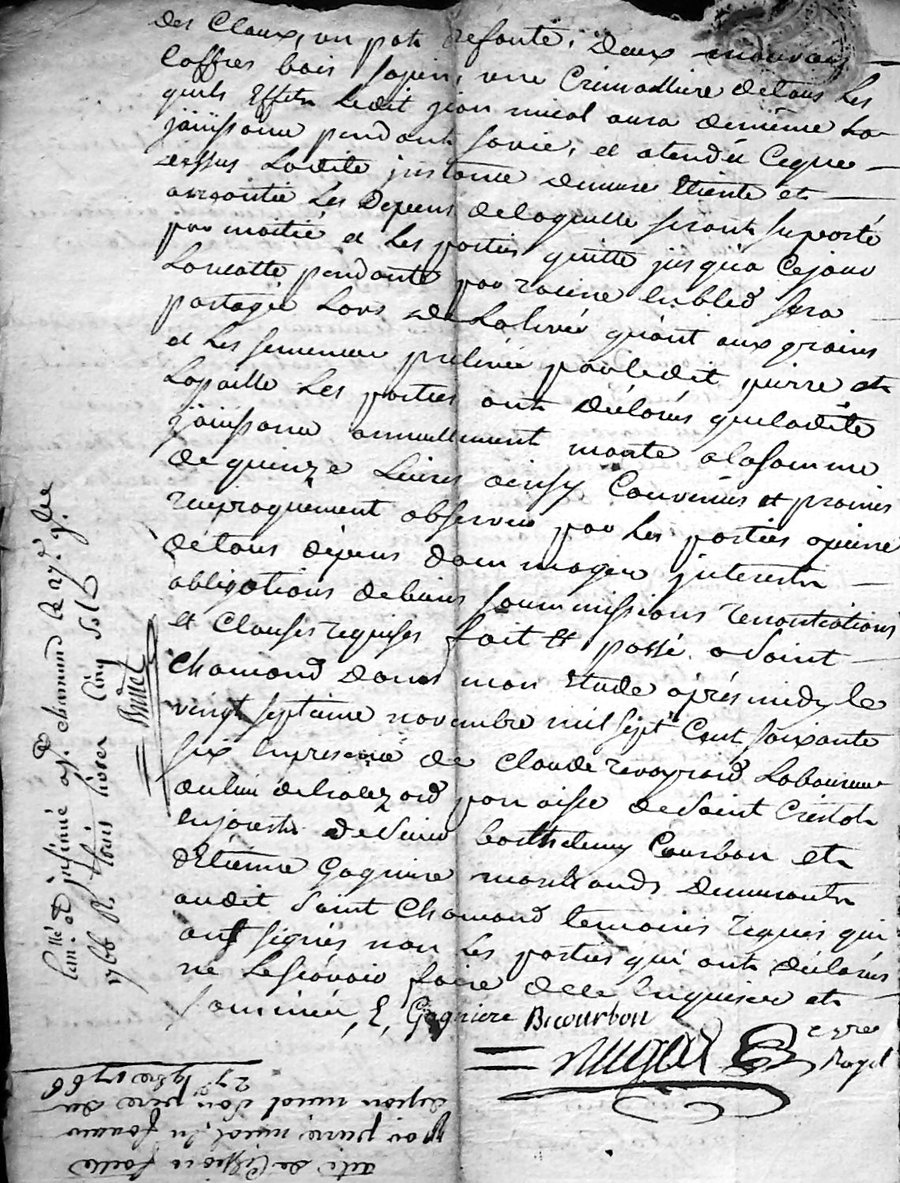 des Claux, un pot de fonte, Deux mauvais
Coffres bois sapin, une Crimalliere de tous Les
quels Effets Ledit jean mical aura de meme La
jaüissance pendant sa vie, et atendu Ceque
dessus Ladite instance demeure Eteinte et
assoutie Les Depens de laquelle seront suporté
par moitié et Les parties quitte jusqua Ce jour
La recolte pendante par racine En bled sera
partagée Lors de La levée quant aux grains
et Les semences prelevée par ledit pierre et
La paille Les parties ont déclarés que ladite
jaüissance annuellement monte a la somme
de quinze Livres ainsy Convenües et promis
reciproquement observer par Les parties a peine
de tous dépens dommages jnterets
obligations de biens soummissions renontiations
et Clauses requises fait et passé a Saint
Chamond dans mon Etude aprés midy le
vingt septieme novembre mil sept Cent soixante
six En presence de Claude Laboureur
du lieu de paroisse de Saint Cristot
En jarets de Sieur barthelemy Courbon et
d'Etienne Gagniere marchands demeurants
audit Saint Chamond temoins requis qui
ont signés non Les parties qui ont déclarés
ne Le scavoir faire de ce Enquises et
sommées, E, Gagniere B Courbon
Royal
Con.llé et jnsinué a St. chamond le 27e. 9bre
1766 R. trois livres Cinq sols
acte de Cession faitte
par pierre mical En faveur
de jean mical son pere du
27e 9bre 1766